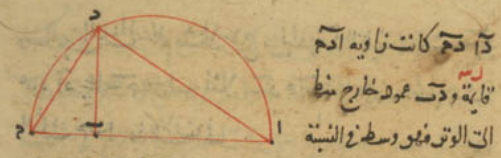 د
دا دح كانت زاويه ادح
قايمة ودب عمود خارج منها
الى الوتر فهو وسط في النسبة
ح ب ا